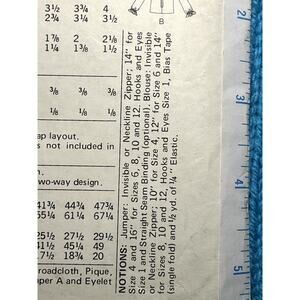 3½ 3¾ 4
2¾ 3¼ 3½
B
1⅞ 2 2⅛
1¼ 1⅜ 1½
⅜ ⅜
⅛ ⅛ ⅛
ap layout.
s not included in
n.
two-way design.
41¾ 44¾ 47¾
55¼ 61¼ 67¼
25½ 27½ 29½
41½ 45¼ 49
17½ 18¾ 20
roadcloth, Pique,
per A and Eyelet
NOTIONS: Jumper: Invisible or Neckline Zipper; 14" for
Size 4 and 16" for Sizes 6, 8, 10 and 12, Hooks and Eyes
Size 1 and Straight Seam Binding (optional). Blouse: Invisible
or Neckline Zipper; 10" for Size 4, 12" for Size 6 and 14"
for Sizes 8, 10 and 12, Hooks and Eyes Size 1, Bias Tape
(single fold) and ½ yd. of ¼" Elastic.
2
3
4
5